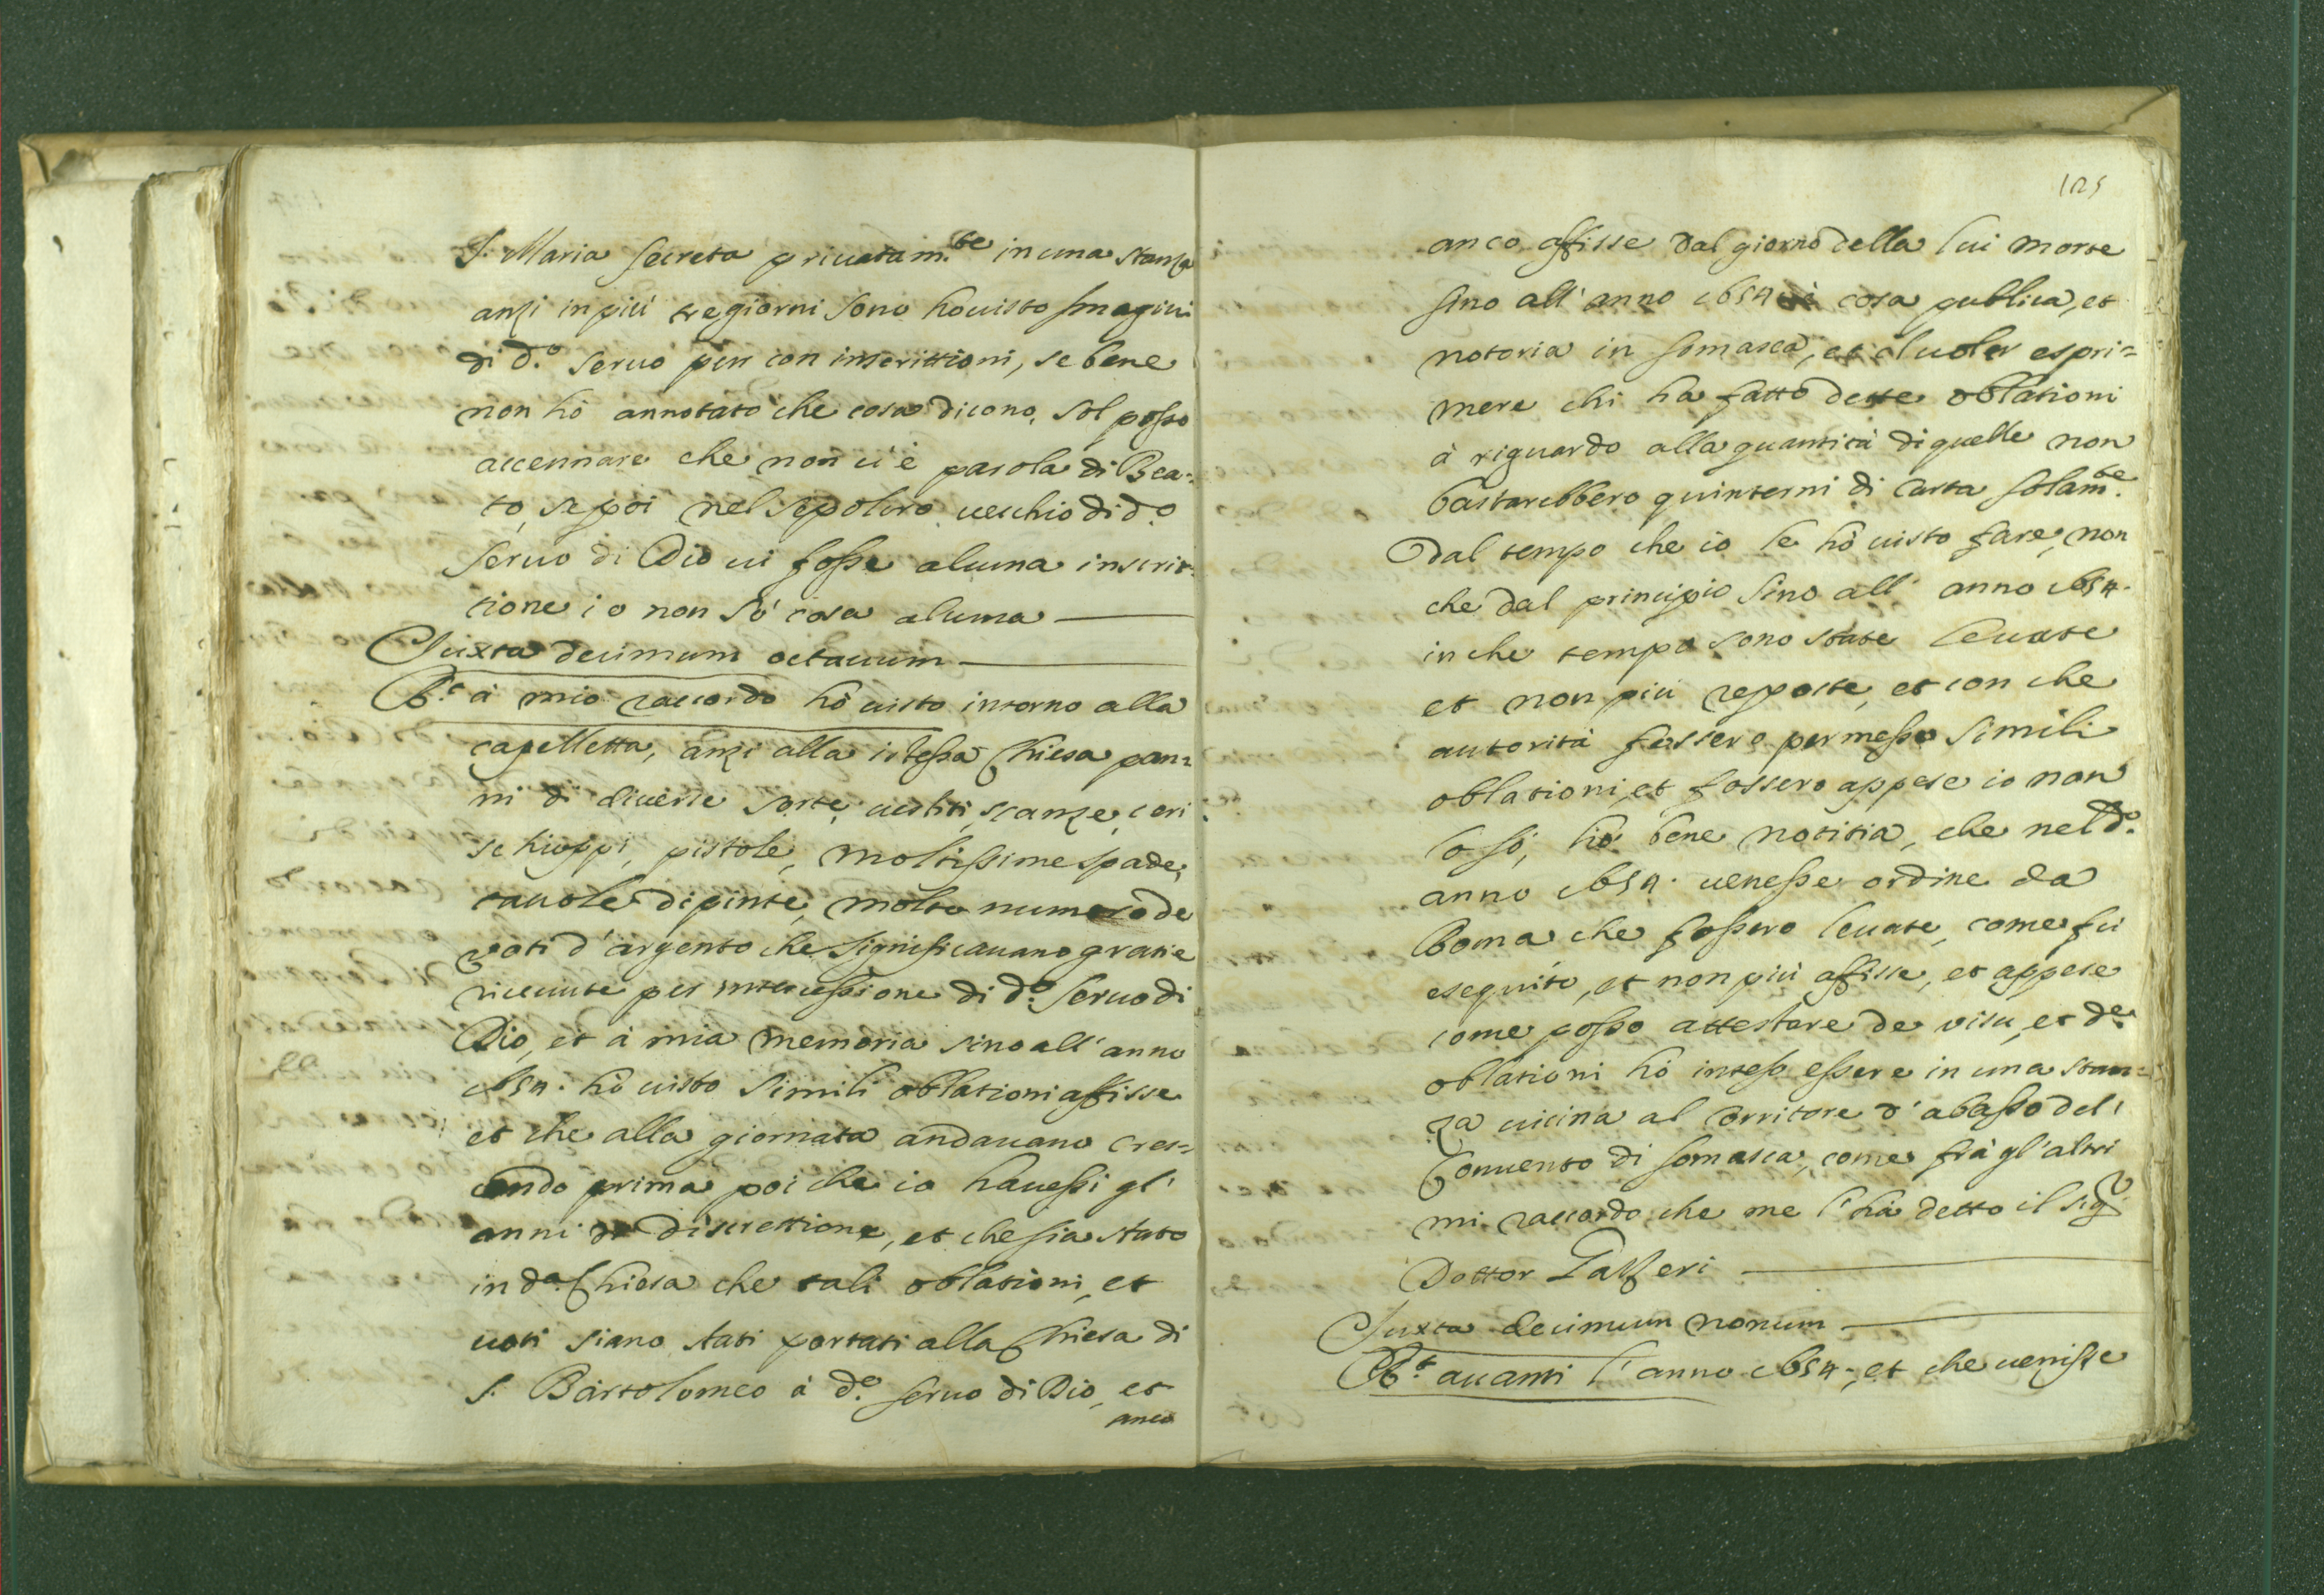 S. Maria Secreta privatam.te in una stanza
anzi in più tregiorni sono hò visto Imagini
di d.o Servo pur con inscrittioni, se bene
non hò annotato che cosa dicono, sol posso
accennare che non vi è parola di Bea=
to, se poi nel sepolcro vecchio di d.o
Servo di Dio vi fosse alcuna inscrit=
tione io non sò cosa alcuna
Juxta decimum octauum
R.t à mio raccordo hò visto intorno alla
capelletta, anzi alla istessa Chiesa pan=
ni di diverse sorte, vestiti, scanze, ceri
schioppi, pistole, moltissime spade,
tavole dipinte, molto numero de
voti d'argento che significavano gratie
ricevute per intercessione di d.o Servo di
Dio, et à mia memoria sino all'anno
1654. hò visto simili oblationi affisse
et che alla giornata andavano cres=
cendo prima poi che io havessi gl'
anni di discrettione, et che sia stato
in d.a Chiesa che tali oblationi, et
voti siano stati portati alla Chiesa di
S. Bartolomeo à d.o Servo di Dio, et
anco
125
anco affisse dal giorno della lui morte
sino all'anno 1654 è cosa publica, et
notoria in Somasca, et il voler espri=
mere chi ha fatto dette oblationi
à riguardo alla quantità di quelle non
bastarebbero quinterni di Carta solam.te
Dal tempo che io le hò visto fare, non
che dal principio sino all'anno 1654.
in che tempo sono state levate
et non più reposte, et con che
autorità fossero permesse simili
oblationi, et fossero appese io non
lo sò, hò bene notitia, che nel d.o
anno 1654. venesse ordine da
Roma che fossero levate, come fù
esequito, et non più affisse, et appese
come posso attestare de visu, et d.e
oblationi hò inteso essere in una stan=
za vicina al Corritore d'abasso del'
Convento di Somasca, come frà gl'altri
mi raccordo che me l'hà detto il sig.r
Dottor
Juxta decimum nonum
R.t avanti l'anno 1654., et che venisse